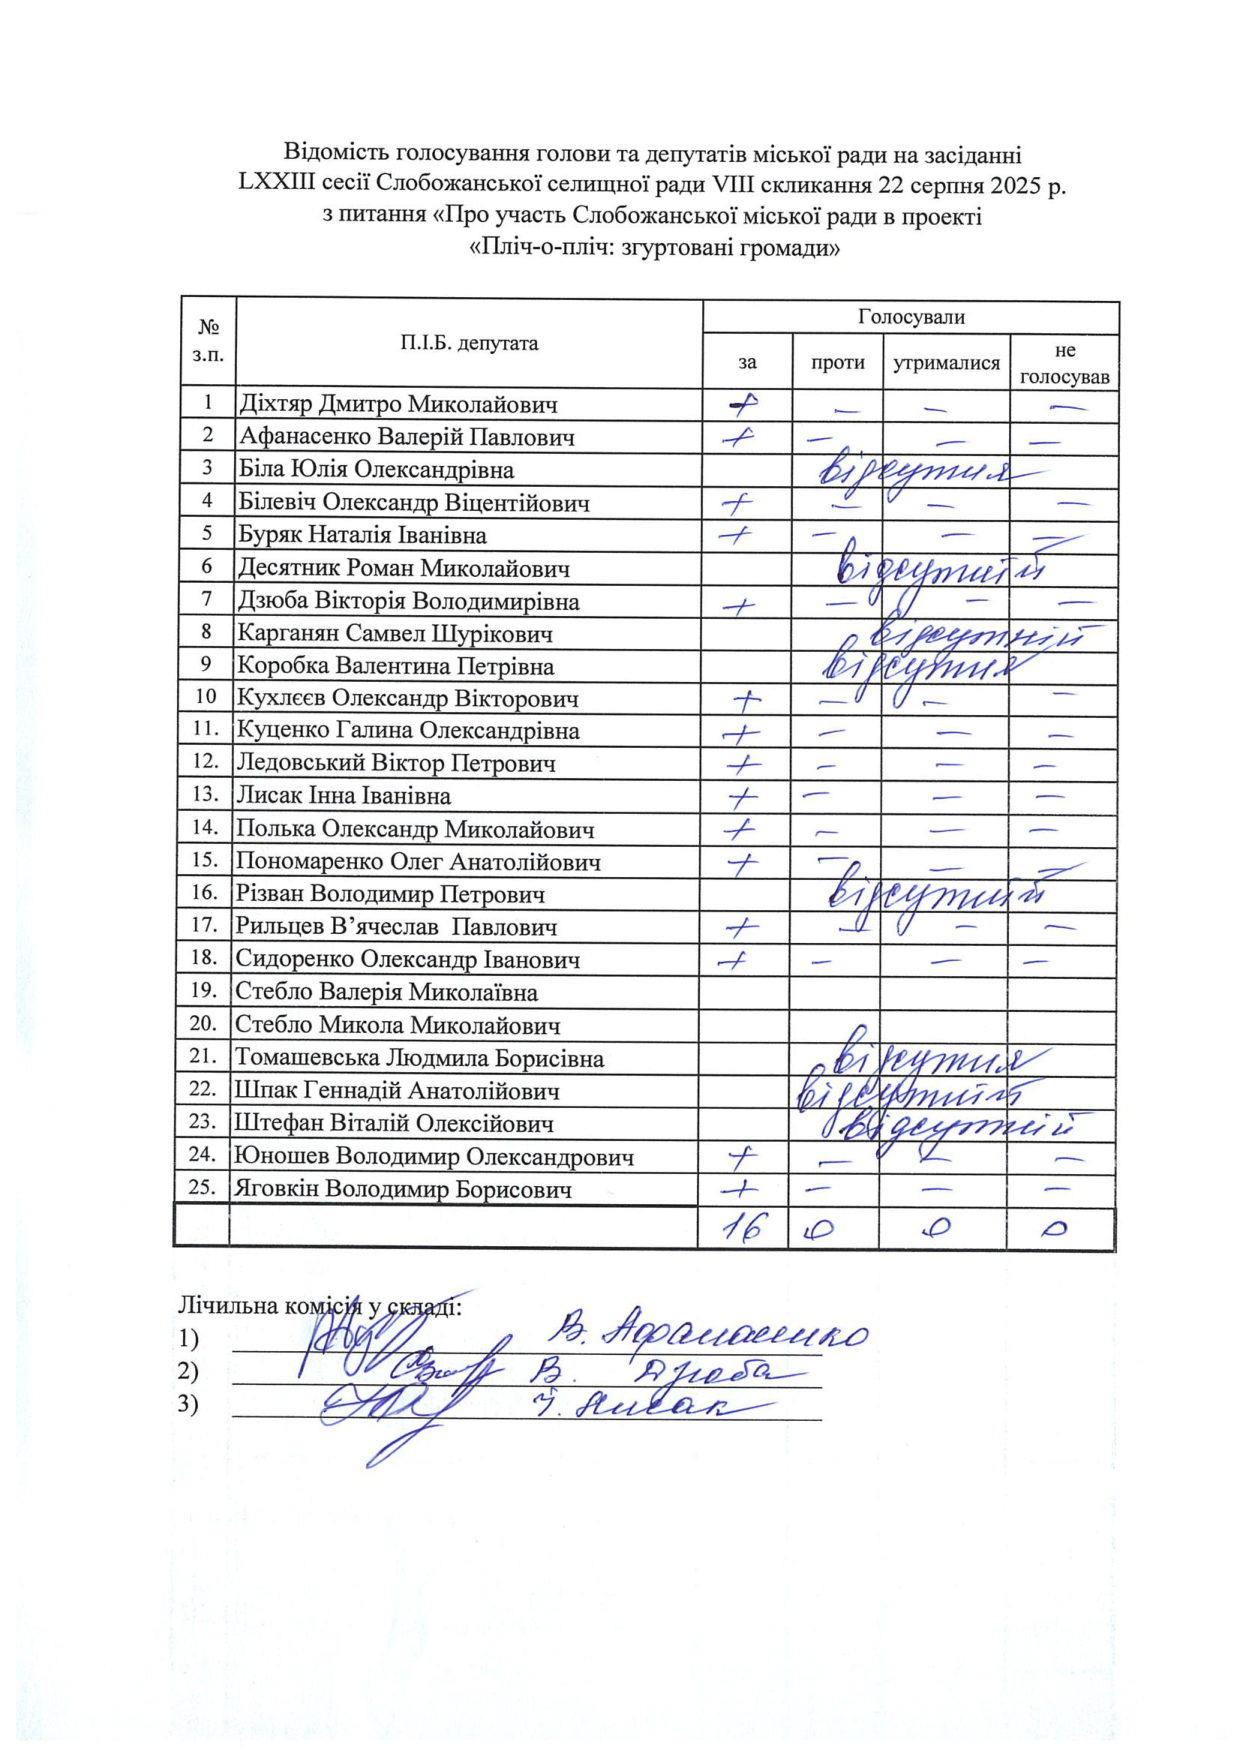 Відомість голосування голови та депутатів міської ради на засіданні
LXXIII сесії Слобожанської селищної ради VIII скликання 22 серпня 2025 р.
з питання «Про участь Слобожанської міської ради в проекті
«Пліч-о-пліч: згуртовані громади»
№ з.п. П.І.Б. депутата Голосували
за проти утрималися не голосував
1 Діхтяр Дмитро Миколайович + — — —
2 Афанасенко Валерій Павлович + — — —
3 Біла Юлія Олександрівна відсутня
4 Білевіч Олександр Віцентійович + — — —
5 Буряк Наталія Іванівна + — — —
6 Десятник Роман Миколайович відсутній
7 Дзюба Вікторія Володимирівна + — — —
8 Карганян Самвел Шурікович відсутній
9 Коробка Валентина Петрівна відсутня
10 Кухлєєв Олександр Вікторович + — — —
11. Куценко Галина Олександрівна + — — —
12. Ледовський Віктор Петрович + — — —
13. Лисак Інна Іванівна + — — —
14. Полька Олександр Миколайович + — — —
15. Пономаренко Олег Анатолійович + — — —
16. Різван Володимир Петрович відсутній
17. Рильцев В’ячеслав Павлович + — — —
18. Сидоренко Олександр Іванович + — — —
19. Стебло Валерія Миколаївна
20. Стебло Микола Миколайович
21. Томашевська Людмила Борисівна відсутня
22. Шпак Геннадій Анатолійович відсутній
23. Штефан Віталій Олексійович відсутній
24. Юношев Володимир Олександрович + — — —
25. Яговкін Володимир Борисович + — — —
16 0 0 0
Лічильна комісія у складі:
1) В. Афанасенко
2) В. Дзюба
3) І. Лисак